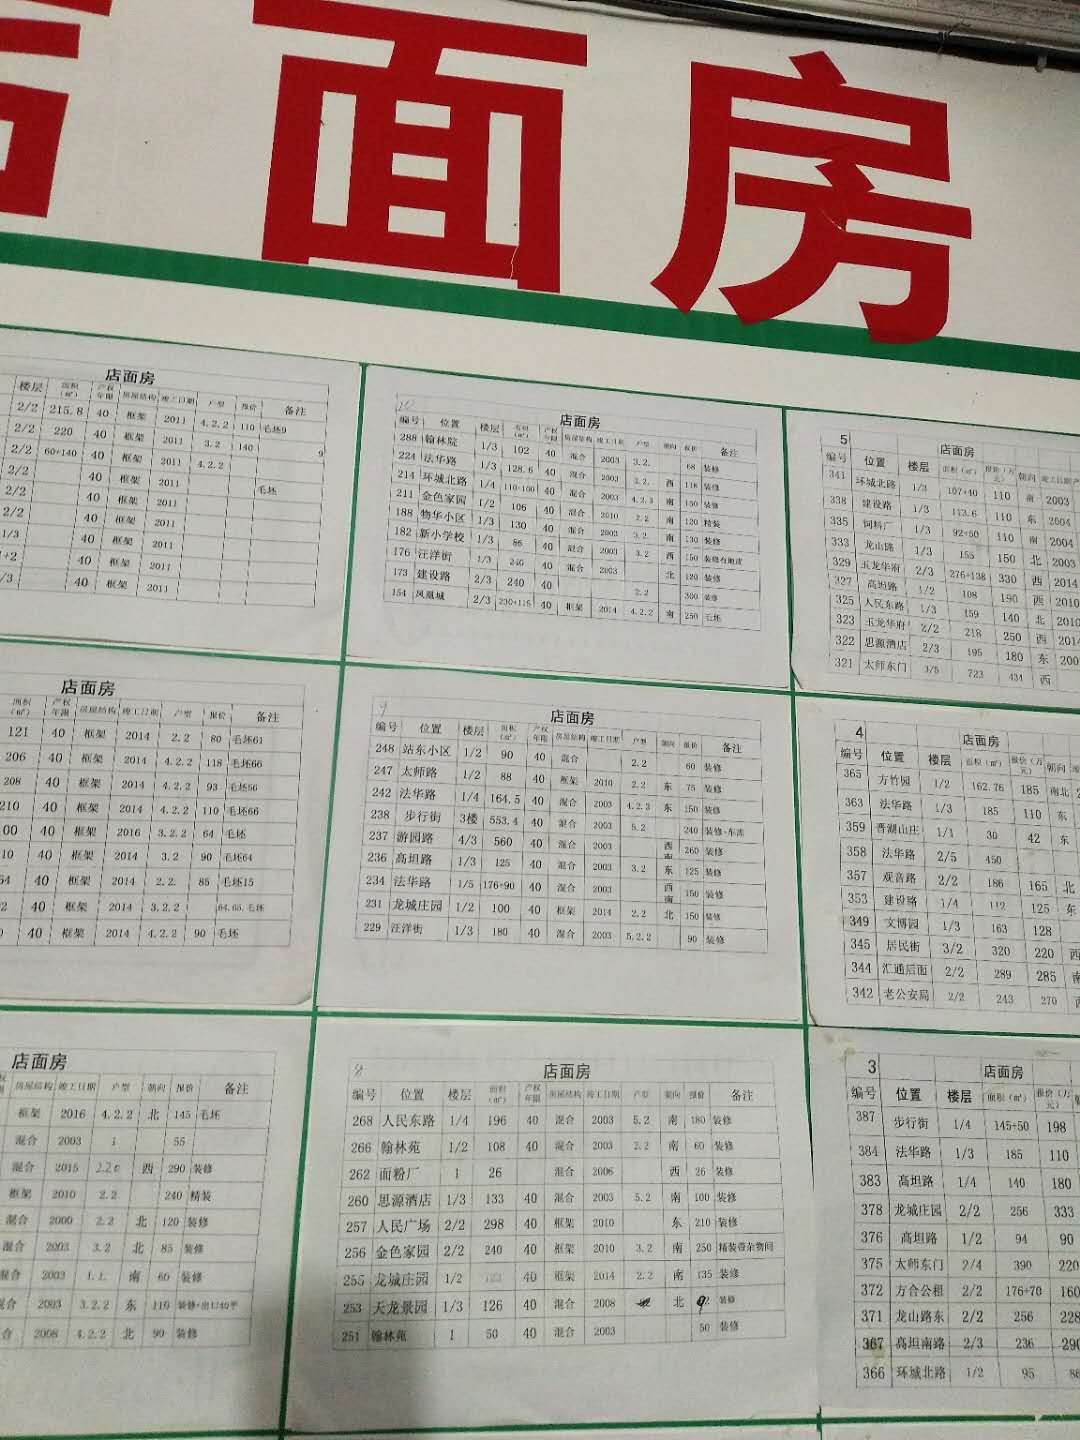 店面房
店面房
楼层 面积(㎡) 产权年限 房屋结构 竣工日期 户型 报价 备注
2/2 215.8 40 框架 2011 4.2.2 110 毛坯9
2/2 220 40 框架 2011 3.2 140 9
2/2 60+140 40 框架 2011 4.2.2
2/2 40 框架 2011 毛坯
2/2 40 框架 2011
40 框架 2011
1/3 40 框架 2011
+2 40 框架 2011
/3 40 框架 2011
10
店面房
编号 位置 楼层 面积(㎡) 产权年限 房屋结构 竣工日期 户型 朝向 报价 备注
288 翰林院 1/3 102 40 混合 2003 3.2. 68 装修
224 法华路 1/3 128.6 40 混合 2003 3.2. 西 118 装修
214 环城北路 1/4 110+100 40 混合 2003 4.2.3 南 150 装修
211 金色家园 1/2 106 40 混合 2010 2.2 南 120 精装
188 物华小区 1/3 130 40 混合 2003 3.2 南 130 装修
182 新小学校 1/3 86 40 混合 2003 3.2 西 150
176 汪洋街 1/3 240 40 混合 2003 北 120 装修
173 建设路 2/3 240 40 2.2 300 装修
154 凤凰城 2/3 230+115 40 框架 2014 4.2.2 南 250 毛坯
5
店面房
编号 位置 楼层 面积(㎡) 报价(万元) 朝向 竣工日期
341 环城北路 1/3 107+40 110 南 2003
338 建设路 1/3 113.6 110 东 2004
335 饲料厂 1/3 92+50 110 南 2004
333 龙山路 1/3 155 150 北 2003
329 玉龙华府 2/3 276+138 330 西 2014
327 高坦路 1/2 108 190 西 2010
325 人民东路 1/3 159 140 北 2010
323 玉龙华府 2/2 218 250 西 201
322 思源酒店 2/3 195 180 东 200
321 太师东门 3/5 723 434 西
店面房
面积(㎡) 产权年限 房屋结构 竣工日期 户型 报价 备注
121 40 框架 2014 2.2 80 毛坯61
206 40 框架 2014 4.2.2 118 毛坯66
208 40 框架 2014 4.2.2 93 毛坯56
210 40 框架 2014 4.2.2 110 毛坯66
00 40 框架 2016 3.2.2 64 毛坯
10 40 框架 2014 3.2 90 毛坯64
64 40 框架 2014 2.2. 85 毛坯15
2 40 框架 2014 3.2.2 64.65.毛坯
40 框架 2014 4.2.2 90 毛坯
9
店面房
编号 位置 楼层 面积(㎡) 产权年限 房屋结构 竣工日期 户型 朝向 报价 备注
248 站东小区 1/2 90 40 混合 2.2 60 装修
247 太师路 1/2 88 40 框架 2010 2.2 东 75 装修
242 法华路 1/4 164.5 40 混合 2003 4.2.3 东 150 装修
238 步行街 3楼 553.4 40 混合 2003 5.2 240 装修+车库
237 游园路 4/3 560 40 混合 2003 西南 260 装修
236 高坦路 1/3 125 40 混合 2003 3.2 东 125 装修
234 法华路 1/5 176+90 40 混合 2003 西南 150 装修
231 龙城庄园 1/2 100 40 框架 2014 2.2 北 150 装修
229 汪洋街 1/3 180 40 混合 2003 5.2.2 90 装修
4
店面房
编号 位置 楼层 面积(㎡) 报价(万元) 朝向
365 方竹园 1/2 162.76 185 南北
363 法华路 1/3 185 110 东
359 晋湖山庄 1/1 30 42 东
358 法华路 2/5 450
357 观音路 2/2 186 165 北
353 建设路 1/4 112 125 东
349 文博园 1/3 163 128
345 居民街 3/2 320 220 西
344 汇通后面 2/2 289 285 南
342 老公安局 2/2 243 270 西
店面房
房屋结构 竣工日期 户型 朝向 报价 备注
框架 2016 4.2.2 北 145 毛坯
混合 2003 1 55
混合 2015 2.2.0 西 290 装修
框架 2010 2.2 240 精装
混合 2000 2.2 北 120 装修
混合 2003 3.2 北 85 装修
混合 2003 1.1. 南 60 装修
混合 2003 3.2.2 东 110 装修+出140平
合 2008 4.2.2 北 90 装修
8
店面房
编号 位置 楼层 面积(㎡) 产权年限 房屋结构 竣工日期 户型 朝向 报价 备注
268 人民东路 1/4 196 40 混合 2003 5.2 南 180 装修
266 翰林苑 1/2 108 40 混合 2003 2.2 南 60 装修
262 面粉厂 1 26 混合 2006 西 26 装修
260 思源酒店 1/3 133 40 混合 2003 5.2 南 100 装修
257 人民广场 2/2 298 40 框架 2010 东 210 装修
256 金色家园 2/2 240 40 框架 2010 3.2 南 250 精装带杂物间
255 龙城庄园 1/2 123 40 框架 2014 2.2 南 135 装修
253 天龙景园 1/3 126 40 混合 2008 北 92 装修
251 翰林苑 1 50 40 混合 2003 50 装修
3
店面房
编号 位置 楼层 面积(㎡) 报价(万元)
387 步行街 1/4 145+50 198
384 法华路 1/3 185 110
383 高坦路 1/4 140 180
378 龙城庄园 2/2 256 333
376 高坦路 1/2 94 90
375 太师东门 2/4 390 220
372 方合公租 2/2 176+70 160
371 龙山路东 2/2 256 228
367 高坦南路 2/3 236 290
366 环城北路 1/2 95 86